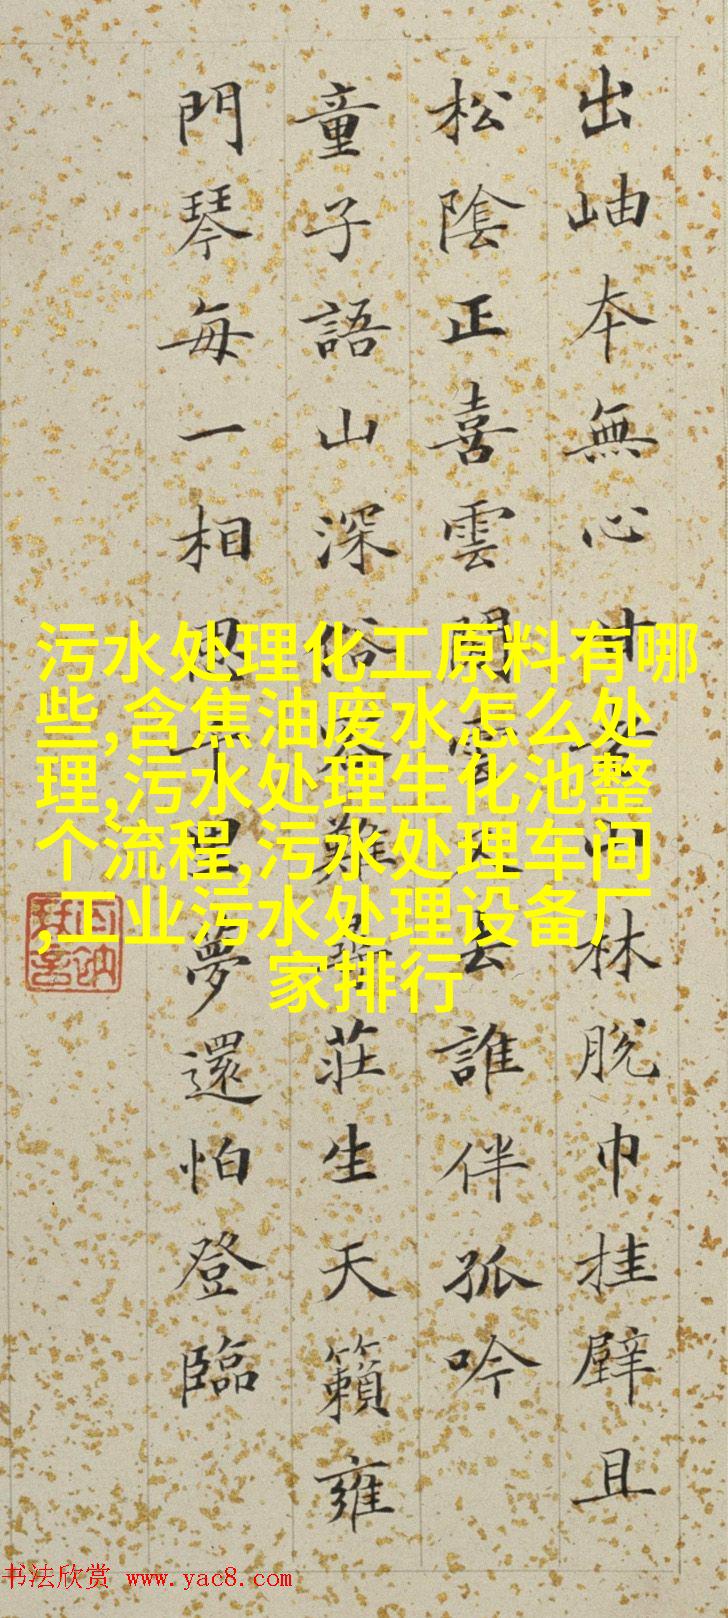 出岫本無心林脱巾挂壁且
松陰正喜雲間雲去誰伴孤吟
童子語山深俗客難尋莊生天籟雍
門琴每一相思千里夢還怕登臨
污水处理化工原料有哪
些,含焦油废水怎么处
理,污水处理生化池整
个流程,污水处理车间
,工业污水处理设备厂
家排行
书法欣赏 www.yac8.com